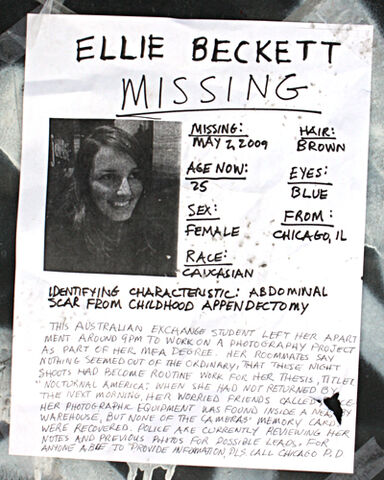 ELLIE BECKETT
MISSING
MISSING:
MAY 2, 2009
AGE NOW:
25
SEX:
FEMALE
RACE:
CAUCASIAN
HAIR:
BROWN
EYES:
BLUE
FROM:
CHICAGO, IL
IDENTIFYING CHARACTERISTIC: ABDOMINAL
SCAR FROM CHILDHOOD APPENDECTOMY
THIS AUSTRALIAN EXCHANGE STUDENT LEFT HER APART
MENT AROUND 9PM TO WORK ON A PHOTOGRAPHY PROJECT
AS PART OF HER MFA DEGREE. HER ROOMMATES SAY
NOTHING SEEMED OUT OF THE ORDINARY, THAT THESE NIGHT
SHOOTS HAD BECOME ROUTINE WORK FOR HER THESIS, TITLED
"NOCTURNAL AMERICA". WHEN SHE HAD NOT RETURNED BY
THE NEXT MORNING, HER WORRIED FRIENDS CALLED
HER PHOTOGRAPHIC EQUIPMENT WAS FOUND INSIDE A
WAREHOUSE, BUT NONE OF THE CAMERAS' MEMORY CARD
WERE RECOVERED. POLICE ARE CURRENTLY REVIEWING HER
NOTES AND PREVIOUS PHOTOS FOR POSSIBLE LEADS. FOR
ANYONE ABLE TO PROVIDE INFORMATION, PLS. CALL CHICAGO P.D